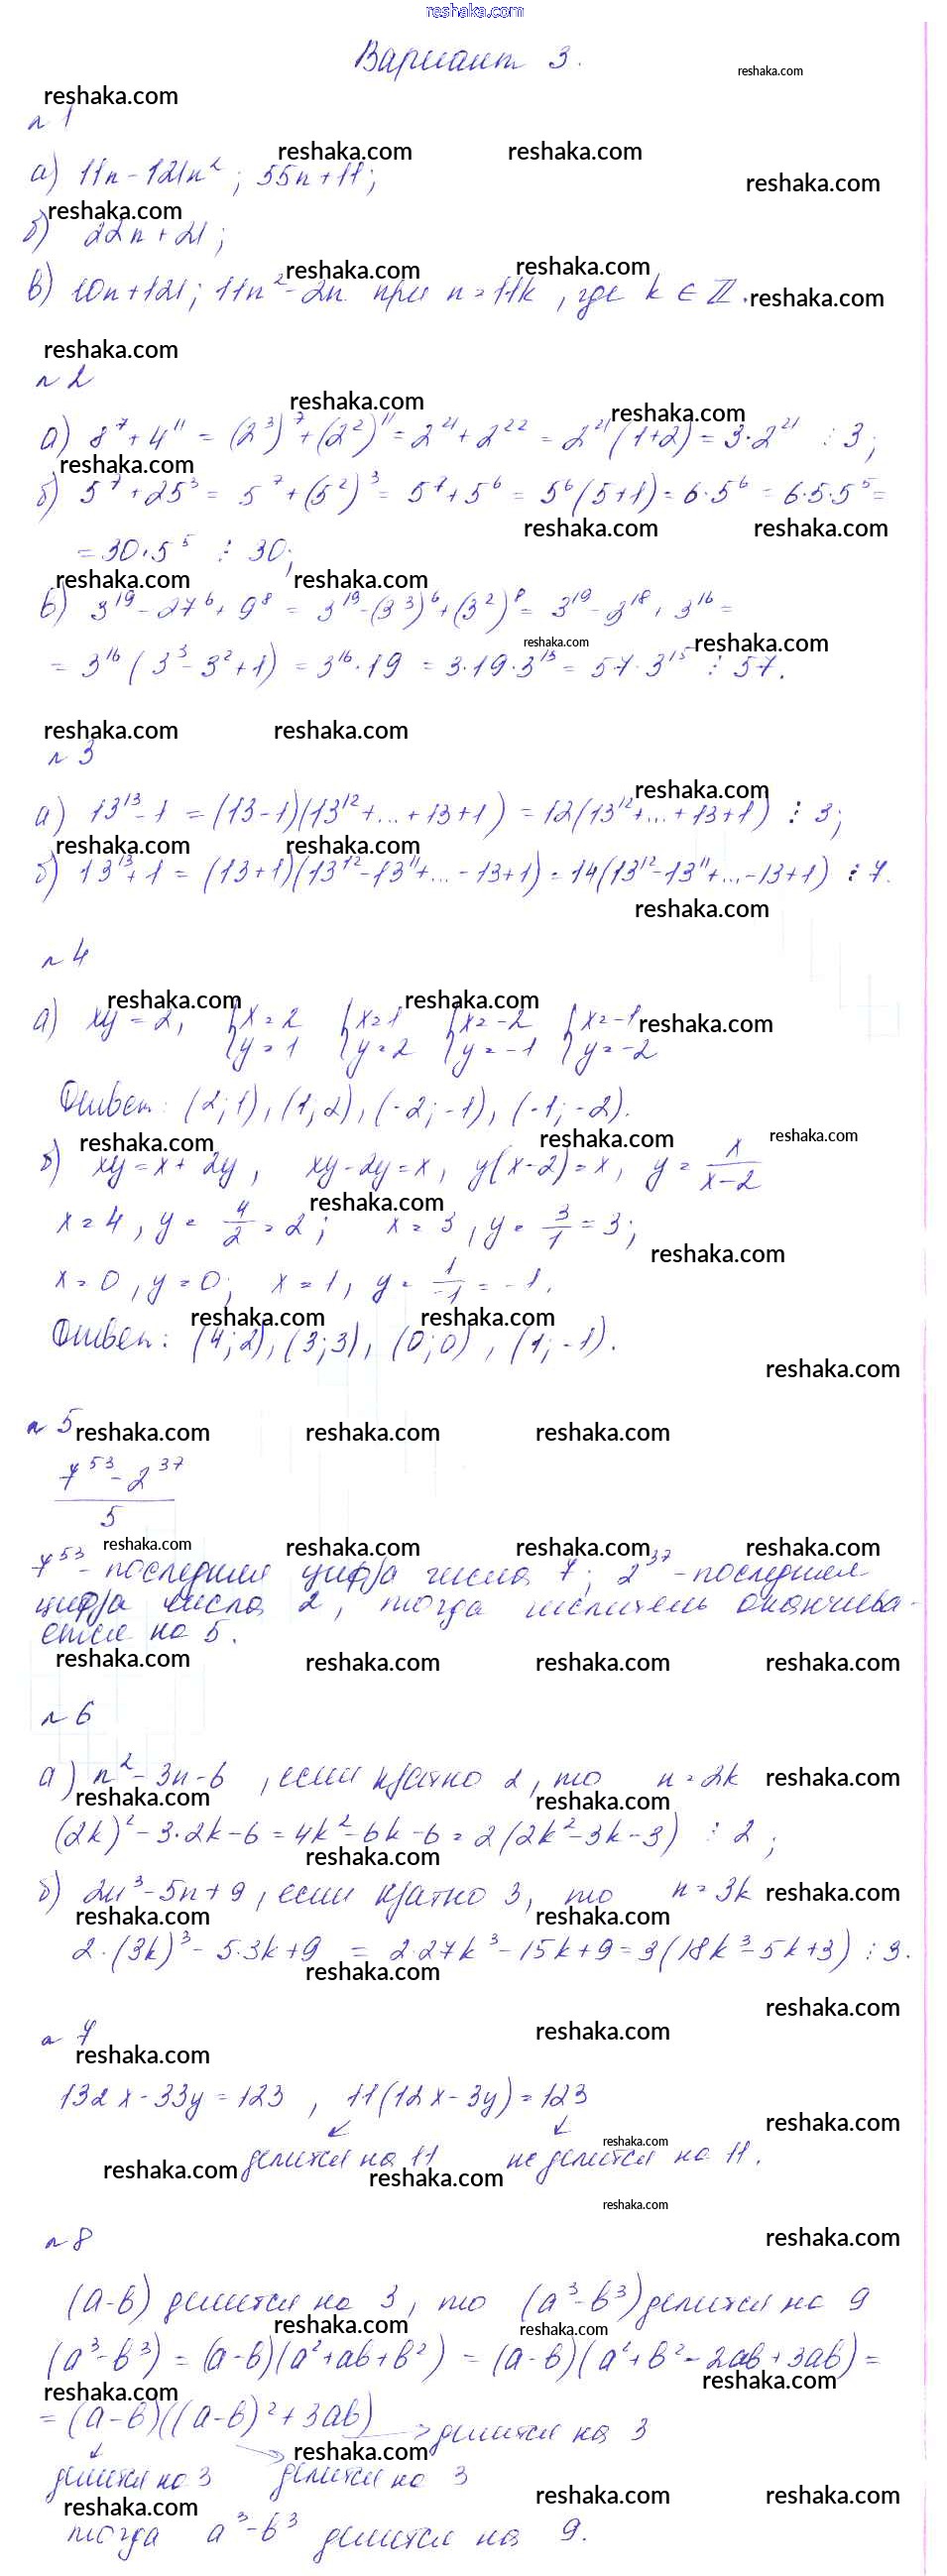 reshaka.com
Вариант 3.
reshaka.com
reshaka.com
n 1
reshaka.com reshaka.com
а) 11n - 121n² ; 55n + 11 ;
reshaka.com
reshaka.com
б) 22n + 21 ;
reshaka.com reshaka.com
в) 10n + 121 ; 11n² - 2n при n = 11k , где k ∈ ℤ .
reshaka.com
reshaka.com
n 2
reshaka.com reshaka.com
а) 8⁷ + 4¹¹ = (2³)⁷ + (2²)¹¹ = 2²¹ + 2²² = 2²¹ (1+2) = 3·2²¹ ⋮ 3 ;
reshaka.com
б) 5⁷ + 25³ = 5⁷ + (5²)³ = 5⁷ + 5⁶ = 5⁶ (5+1) = 6·5⁶ = 6·5·5⁵ =
reshaka.com reshaka.com
= 30·5⁵ ⋮ 30 ;
reshaka.com reshaka.com
в) 3¹⁹ - 27⁶ + 9⁸ = 3¹⁹ - (3³)⁶ + (3²)⁸ = 3¹⁹ - 3¹⁸ + 3¹⁶ =
reshaka.com reshaka.com
= 3¹⁶ (3³ - 3² + 1) = 3¹⁶ · 19 = 3·19·3¹⁵ = 57·3¹⁵ ⋮ 57.
reshaka.com reshaka.com
n 3
reshaka.com
а) 13¹³ - 1 = (13-1)(13¹² + ... + 13 + 1) = 12(13¹² + ... + 13 + 1) ⋮ 3 ;
reshaka.com reshaka.com
б) 13¹³ + 1 = (13+1)(13¹² - 13¹¹ + ... - 13 + 1) = 14(13¹² - 13¹¹ + ... - 13 + 1) ⋮ 7.
reshaka.com
n 4
reshaka.com reshaka.com reshaka.com
а) xy = 2, { x = 2 { x = 1 { x = -2 { x = -1
y = 1 y = 2 y = -1 y = -2
Ответ: (2; 1), (1; 2), (-2; -1), (-1; -2).
reshaka.com reshaka.com reshaka.com
б) xy = x + 2y , xy - 2y = x , y(x-2) = x , y = x/(x-2)
reshaka.com
x = 4 , y = 4/2 = 2 ; x = 3 , y = 3/1 = 3 ;
reshaka.com
x = 0 , y = 0 ; x = 1 , y = 1/-1 = -1.
reshaka.com reshaka.com
Ответ: (4; 2), (3; 3), (0; 0) , (1; -1).
reshaka.com
n 5
reshaka.com reshaka.com reshaka.com
7⁵³ - 2³⁷
5
reshaka.com reshaka.com reshaka.com reshaka.com
7⁵³ - последняя цифра числа 7 ; 2³⁷ - последняя
цифра числа 2 , тогда числитель оканчива-
ется на 5.
reshaka.com reshaka.com reshaka.com reshaka.com
n 6
а) n² - 3n - 6 , если кратно 2 , то n = 2k reshaka.com
reshaka.com reshaka.com
(2k)² - 3·2k - 6 = 4k² - 6k - 6 = 2(2k² - 3k - 3) ⋮ 2 ;
reshaka.com
б) 2n³ - 5n + 9 , если кратно 3 , то n = 3k reshaka.com
reshaka.com reshaka.com
2·(3k)³ - 5·3k + 9 = 2·27k³ - 15k + 9 = 3(18k³ - 5k + 3) ⋮ 3.
reshaka.com
reshaka.com
n 7 reshaka.com
reshaka.com
132x - 33y = 123 , 11(12x - 3y) = 123
reshaka.com
reshaka.com
делится на 11 не делится на 11.
reshaka.com reshaka.com
reshaka.com
n 8 reshaka.com
(a-b) делится на 3 , то (a³-b³) делится на 9
reshaka.com reshaka.com
(a³-b³) = (a-b)(a²+ab+b²) = (a-b)(a²+b²-2ab+3ab) =
reshaka.com reshaka.com
= (a-b)((a-b)²+3ab) → делится на 3
reshaka.com
делится на 3 делится на 3
reshaka.com reshaka.com reshaka.com
тогда a³-b³ делится на 9.